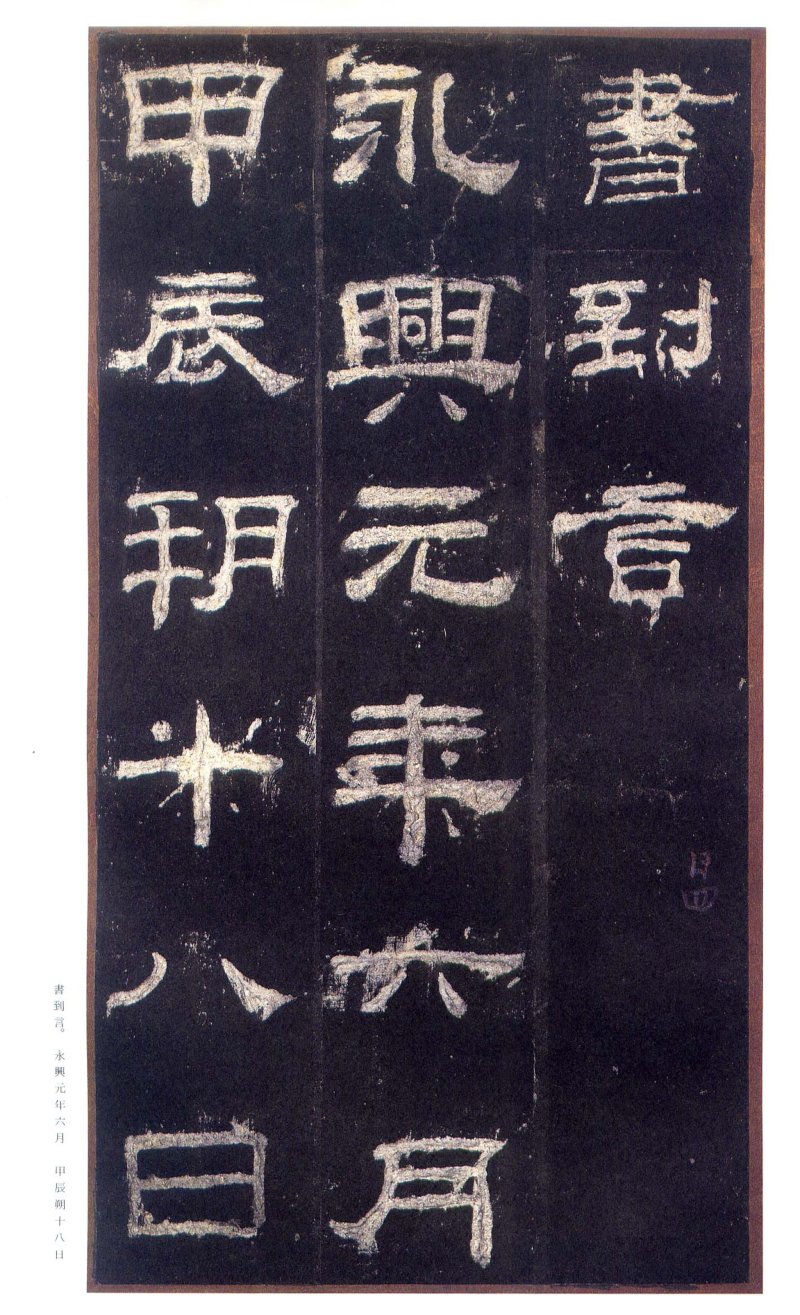 書到言
永興元年六月
甲辰朔十八日
書到言。 永興元年六月 甲辰朔十八日